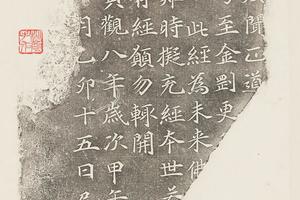 聞正道
至金剛更
此經為未来佛
難時擬充經本世若
有經願勿輒開
貞觀八年歲次甲午
月乙卯十五日